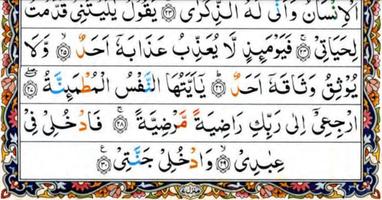 الۡاِنۡسَانُ وَاَنّٰى لَهُ الذِّكۡرٰىؕ ﴿۲۳﴾ يَقُوۡلُ يٰلَيۡتَنِىۡ قَدَّمۡتُ
لِحَيَاتِىۡۚ ﴿۲۴﴾ فَيَوۡمَئِذٍ لَّا يُعَذِّبُ عَذَابَهٗۤ اَحَدٌ ۙ ﴿۲۵﴾ وَّلَا
يُوۡثِقُ وَثَاقَهٗۤ اَحَدٌ ؕ ﴿۲۶﴾ يٰۤاَيَّتُهَا النَّفۡسُ الۡمُطۡمَئِنَّةُ ۖ ﴿۲۷﴾
ارۡجِعِىۡۤ اِلٰى رَبِّكِ رَاضِيَةً مَّرۡضِيَّةً ۚ ﴿۲۸﴾ فَادۡخُلِىۡ فِىۡ
عِبٰدِىۙ ﴿۲۹﴾ وَادۡخُلِىۡ جَنَّتِىۡ ﴿۳۰﴾